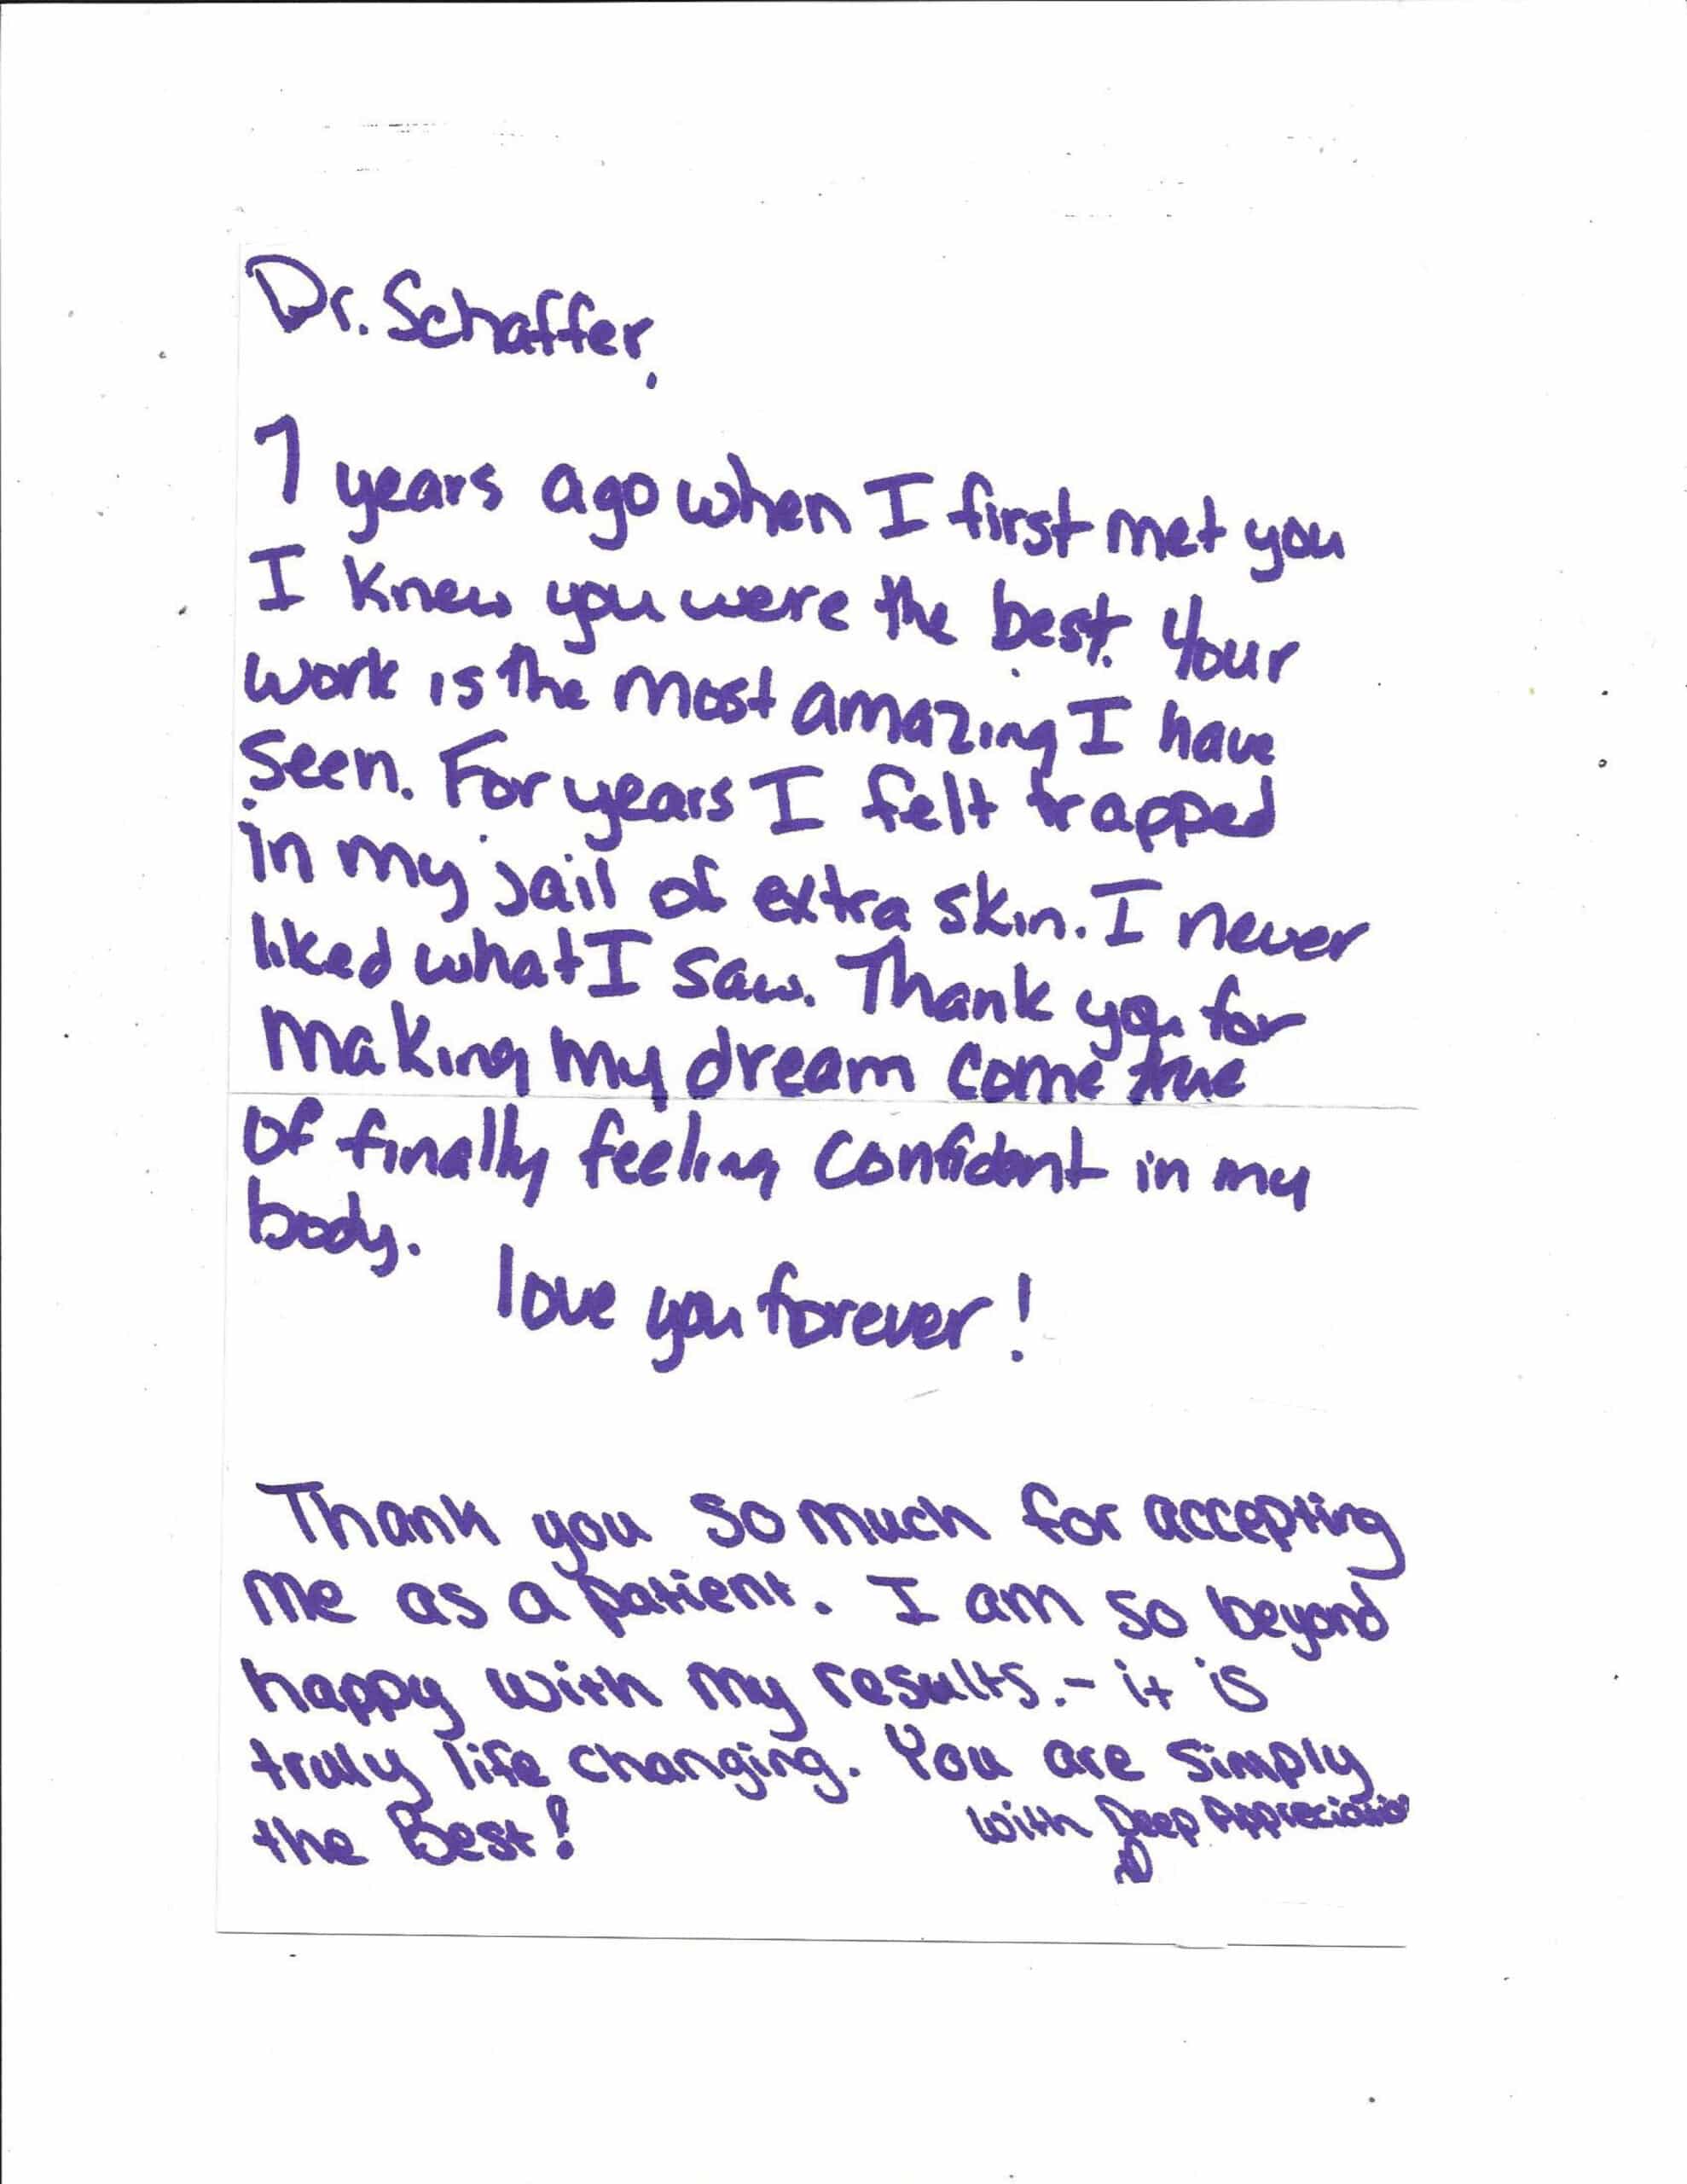 Dr. Schaffer,
7 years ago when I first met you
I knew you were the best. Your
work is the most amazing I have
seen. For years I felt trapped
in my jail of extra skin. I never
liked what I saw. Thank you for
making my dream come true
of finally feeling confident in my
body.
love you forever!
Thank you so much for accepting
me as a patient. I am so beyond
happy with my results. - it is
truly life changing. You are simply
the Best!
With Deep Appreciation